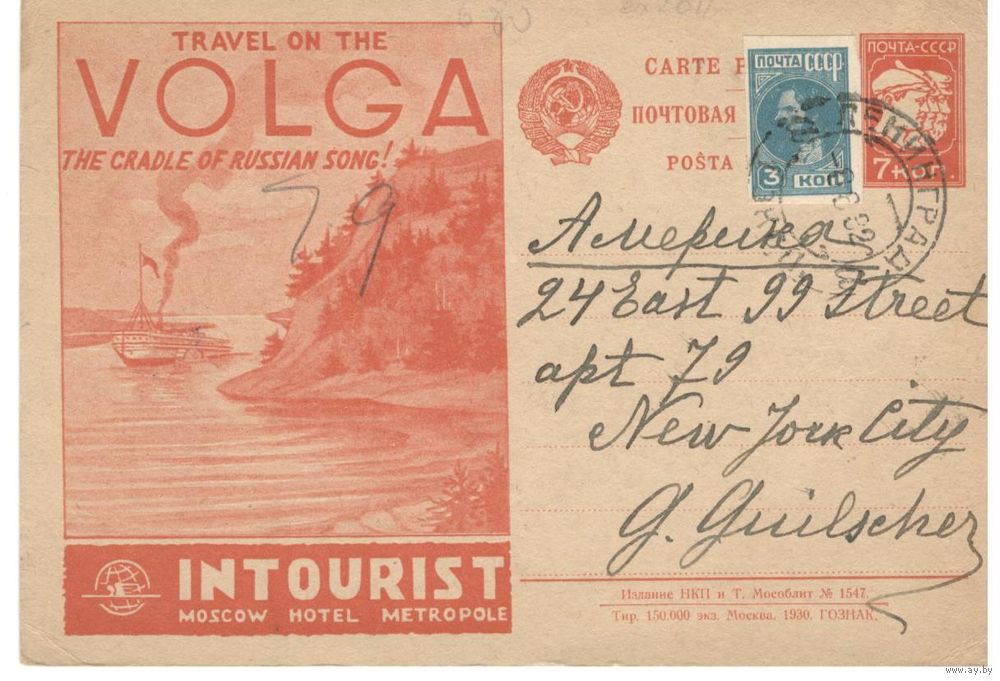 TRAVEL ON THE
VOLGA
THE CRADLE OF RUSSIAN SONG!
79
INTOURIST
MOSCOW HOTEL METROPOLE
CARTE P
ПОЧТОВАЯ
POŜTA
ПОЧТА СССР
3 КОП
ПОЧТА-СССР
7 КОП.
ЛЕНИНГРАД
Америка
24 East 99 Street
apt 79
New York City
G. Guilscher
Издание НКП и Т. Мособлит № 1547.
Тир. 150.000 экз. Москва. 1930. ГОЗНАК.
www.ay.by